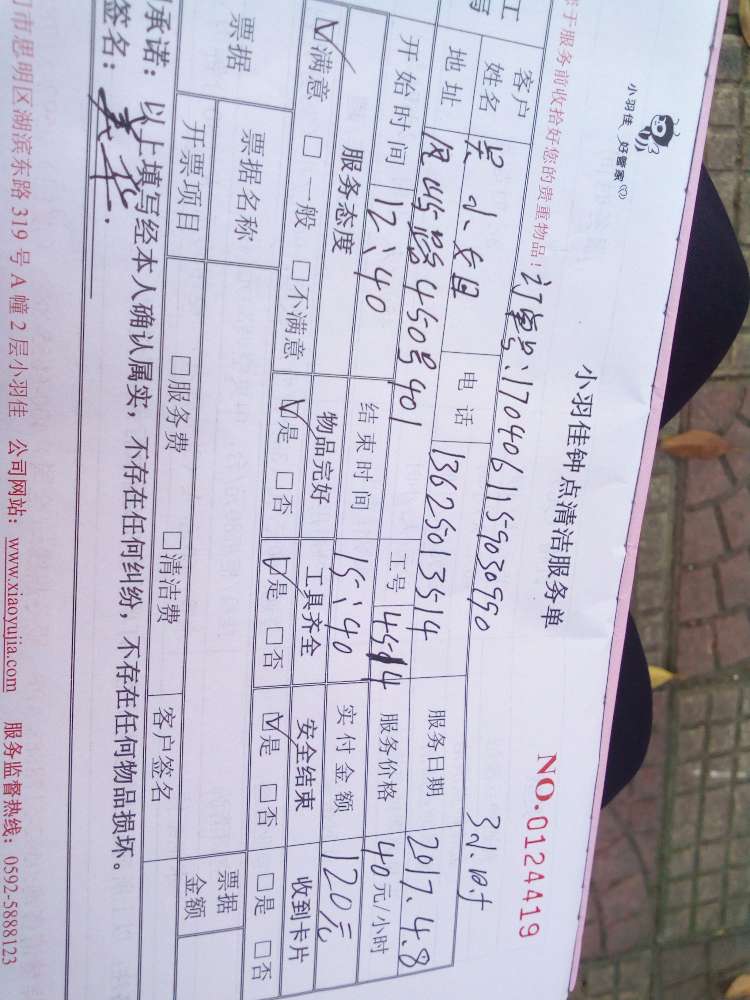 小羽佳 好管家
小羽佳钟点清洁服务单
NO.0124419
于服务前收拾好您的贵重物品！订单号:1704061159030950
3小时
客户姓名 吴小姐 电话 13625013514 服务日期 2017.4.8
地址 凤屿路450号401 工号 4514 服务价格 40元/小时
开始时间 12:40 结束时间 15:40 实付金额 120元
服务态度 物品完好 工具齐全 安全结束 收到卡片
☑满意 □一般 □不满意 ☑是 □否 ☑是 □否 ☑是 □否 □是 □否
票据 票据名称 □服务费 □清洁费 客户签名 票据金额
开票项目
承诺：以上填写经本人确认属实，不存在任何纠纷，不存在任何物品损坏。
签名：
市思明区湖滨东路 319 号 A 幢 2 层小羽佳 公司网站：www.xiaoyujia.com 服务监督热线：0592-5888123